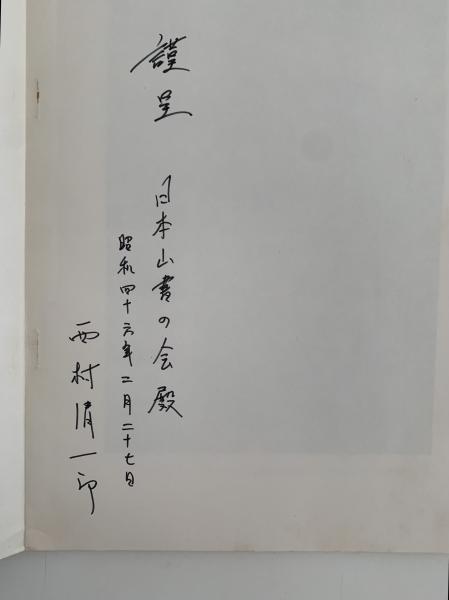 謹呈 日本山書の会殿
昭和四十六年二月二十七日
西村清一郎